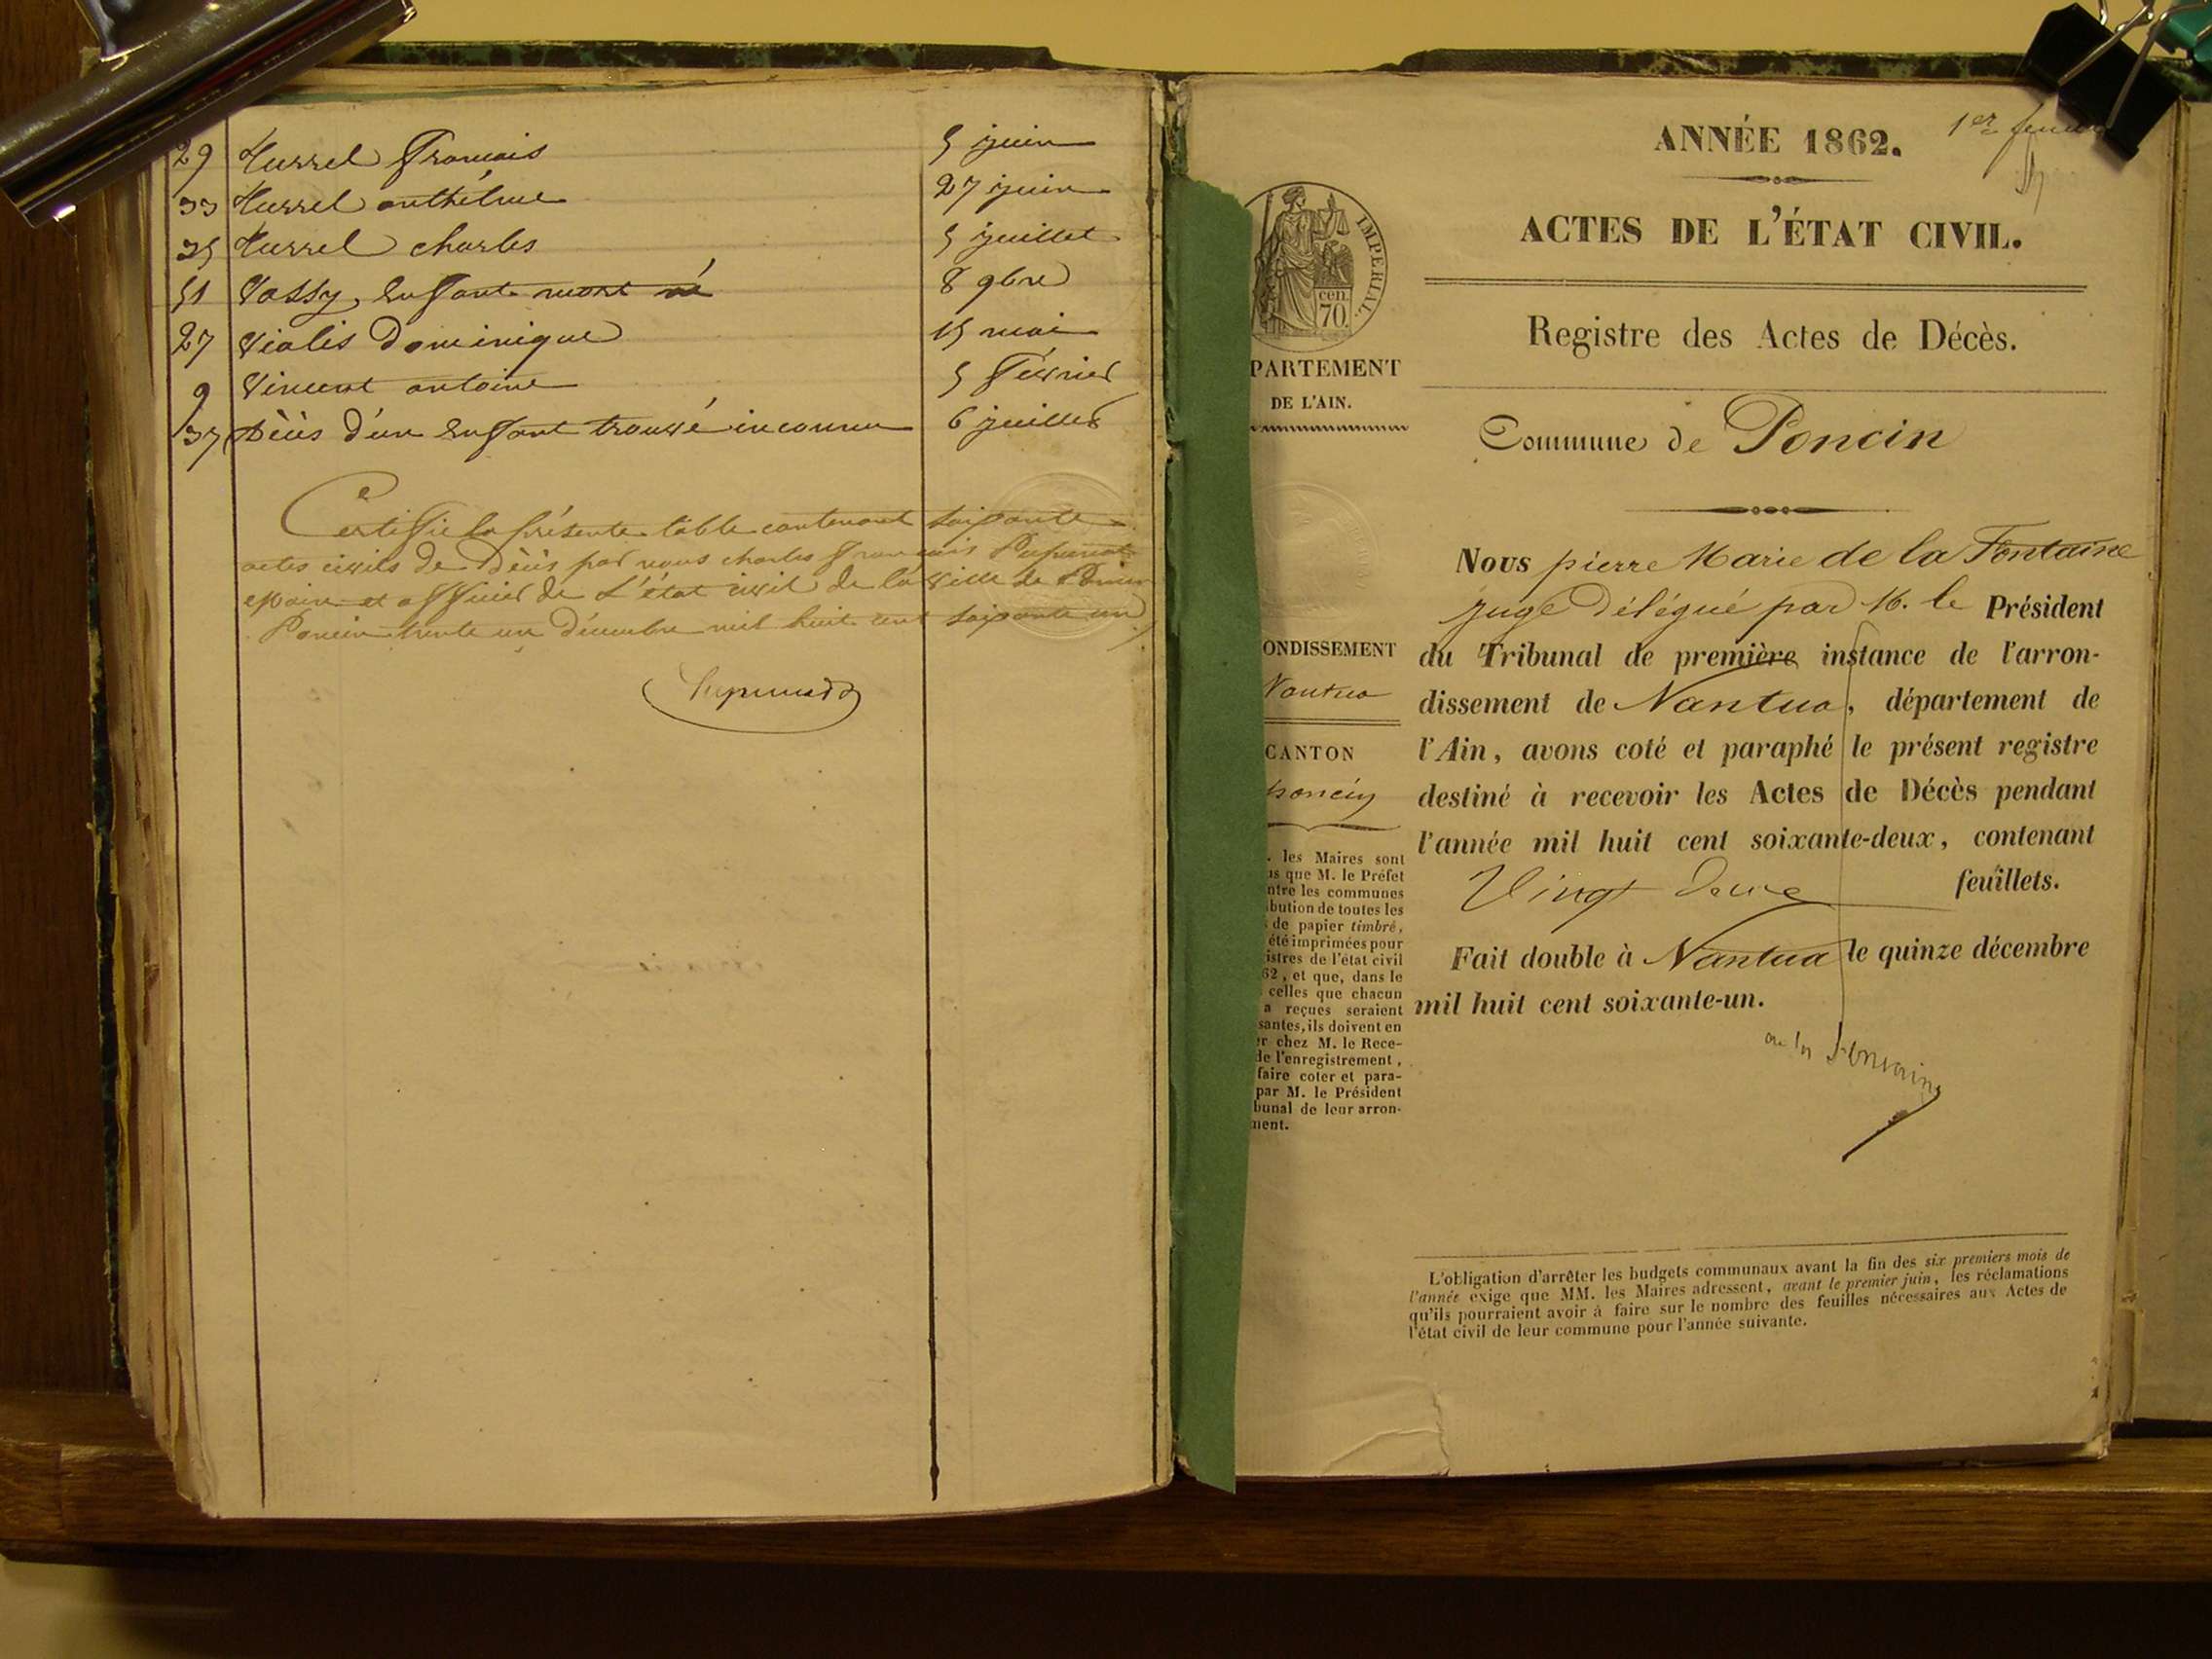 29 Hurrel François 5 juin
33 Hurrel anthelme 27 juin
35 Hurrel charles 5 juillet
51 Vassy, Enfant mort né 8 9bre
27 Vialis Dominique 15 mai
9 Vincent antoine 5 Février
37 Décès d'un Enfant trouvé inconnu 6 juillet
Certifie la présente table contenant soixante
actes civils de Décès par nous charles françois
Maire et officier de L'état civil de la ville de Poncin
Poncin trente un Décembre mil huit cent soixante un
ANNÉE 1862.
1er
ACTES DE L'ÉTAT CIVIL.
IMPERIAL.
cen.
70.
Registre des Actes de Décès.
PARTEMENT
DE L'AIN.
Commune de Poncin
Nous pierre Marie de la Fontaine
juge Délégué par M. le Président
du Tribunal de première instance de l'arron-
dissement de Nantua, département de
l'Ain, avons coté et paraphé le présent registre
destiné à recevoir les Actes de Décès pendant
l'année mil huit cent soixante-deux, contenant
Vingt deux feuillets.
Fait double à Nantua le quinze décembre
mil huit cent soixante-un.
de la Fontaine
ONDISSEMENT
Nantua
CANTON
Poncin
. les Maires sont
us que M. le Préfet
ntre les communes
ibution de toutes les
de papier timbré,
été imprimées pour
istres de l'état civil
62, et que, dans le
celles que chacun
a reçues seraient
santes, ils doivent en
er chez M. le Rece-
de l'enregistrement,
faire coter et para-
par M. le Président
bunal de leur arron-
ment.
L'obligation d'arrêter les budgets communaux avant la fin des six premiers mois de
l'année exige que MM. les Maires adressent, avant le premier juin, les réclamations
qu'ils pourraient avoir à faire sur le nombre des feuilles nécessaires aux Actes de
l'état civil de leur commune pour l'année suivante.